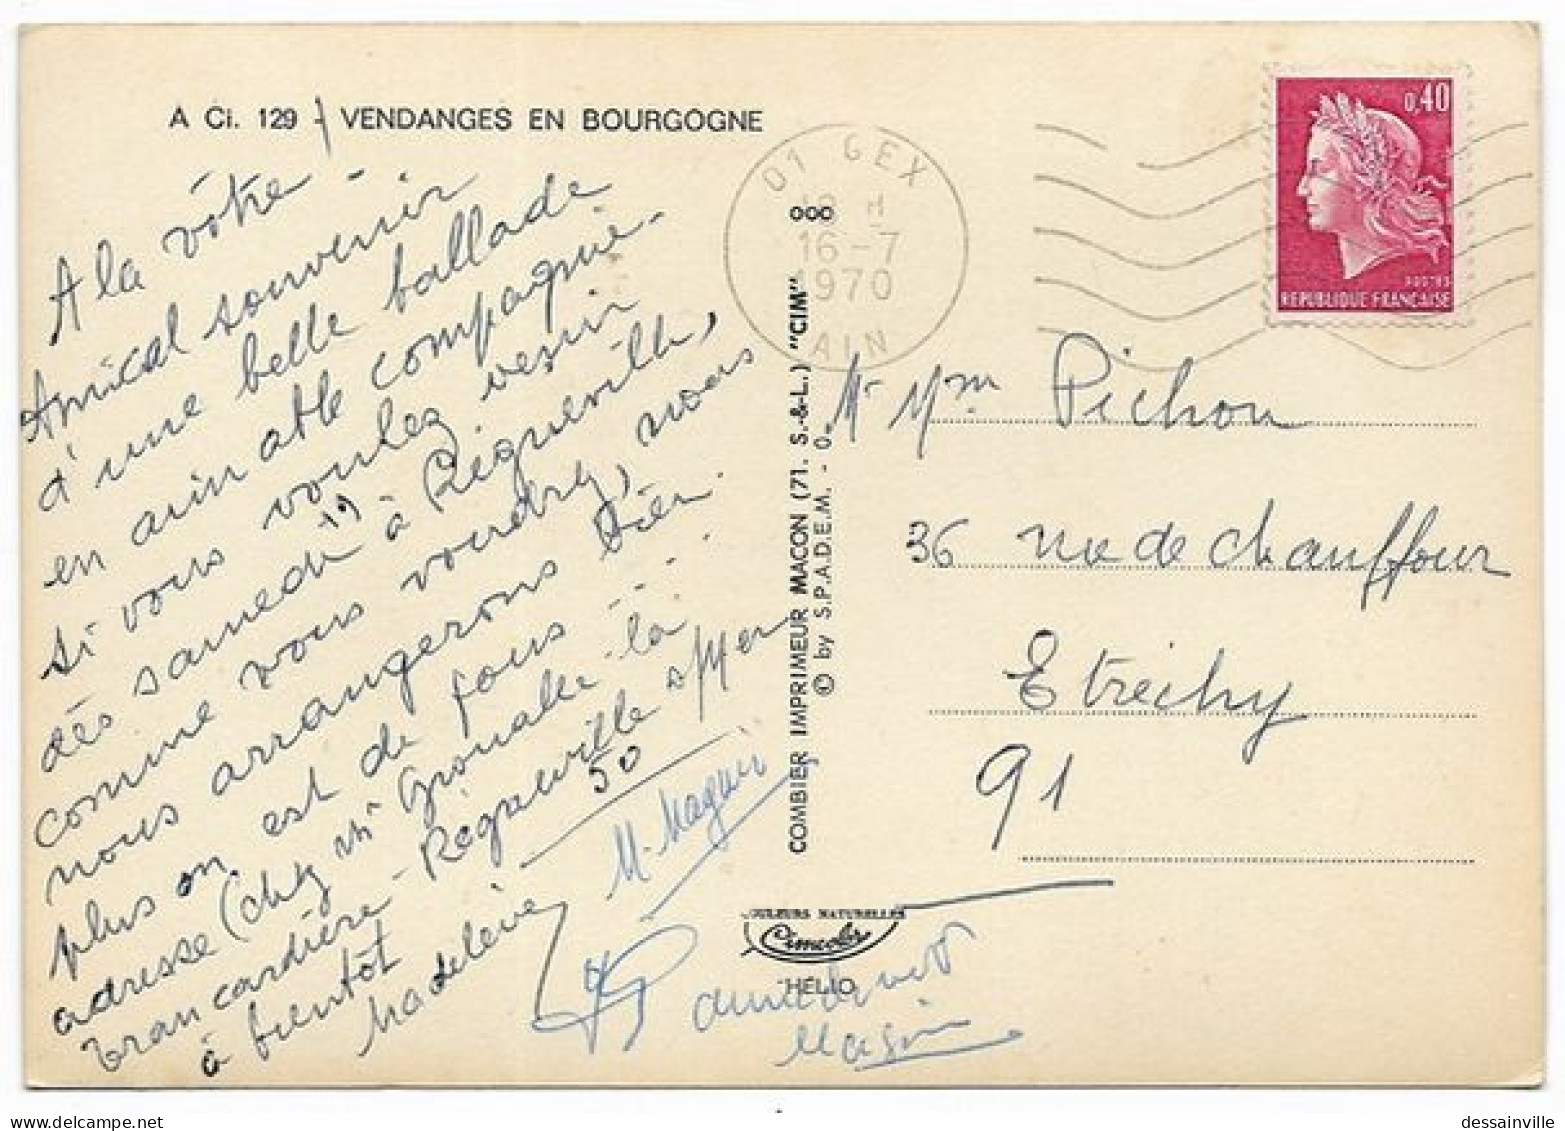 A Ci. 129 - VENDANGES EN BOURGOGNE
A la vôtre -
Amical souvenir
d'une belle ballade
en aimable compagnie.
si vous voulez venir
dès samedi 19 à Régneville,
comme vous voudrez, nous
nous arrangerons bien.
plus on est de fous ....
adresse (chez Mr la
- Régneville s/Mer
50
à bientôt
Madeleine
M. Magnin
01 GEX
18 H
16-7
1970
AIN
0,40
REPUBLIQUE FRANÇAISE
COMBIER IMPRIMEUR MACON (71. S.-&-L.) "CIM"
© by S.P.A.D.E.M. - O.
000
Mr Mme Pichon
36 rue de Chauffour
Etréchy
91
COULEURS NATURELLES
Cimcolor
HÉLIO
dessainville